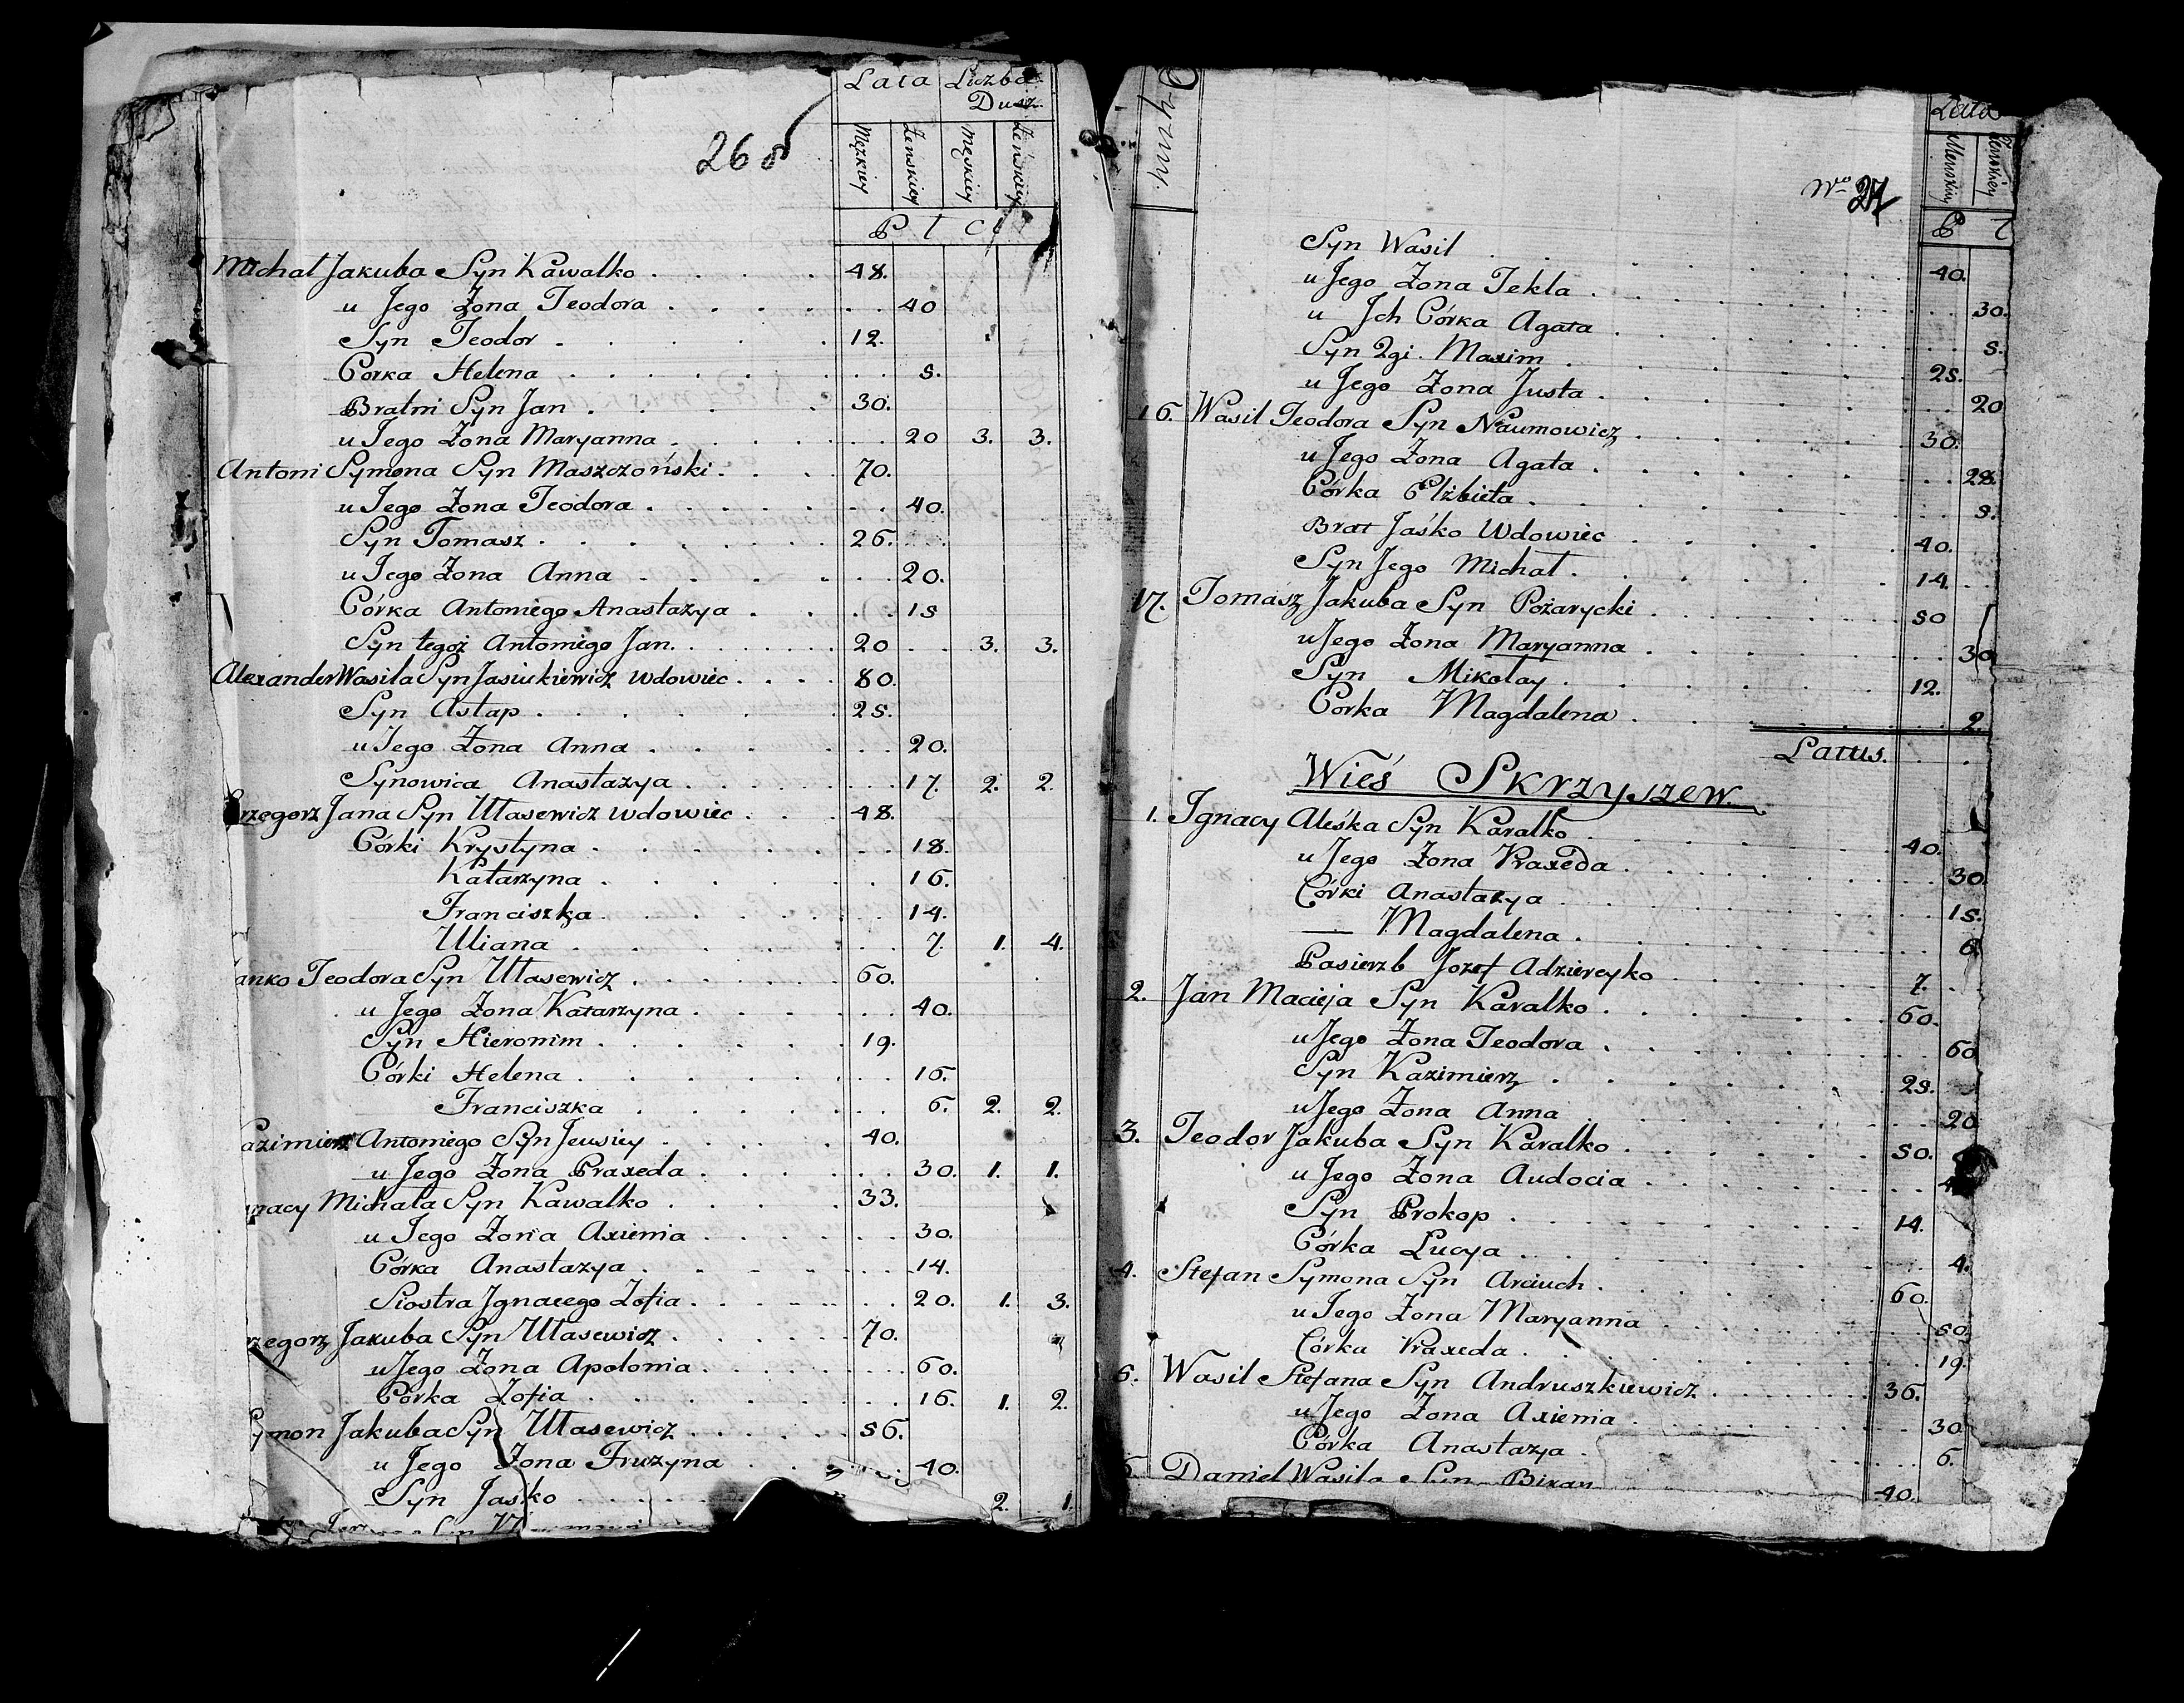 Lata Liczba
Dusz
26 об
Męzkiey Żenskiey męskiey Żeńskiey
P l c i
Michał Jakuba Syn Kawalko 48.
u Jego Żona Teodora 40
Syn Teodor 12.
Corka Helena 5.
Bratni Syn Jan 30.
u Jego Żona Maryanna 20 3. 3.
Antoni Symona Syn Maszczoński 70.
u Jego Żona Teodora 40.
Syn Tomasz 26.
u Jego Żona Anna 20.
Córka Antoniego Anastazya 15
Syn tegoż Antoniego Jan 20 3. 3.
Alexander Wasila Syn Jasiukiewicz wdowiec 80.
Syn Astap 25.
u Jego Żona Anna 20.
Synowica Anastazya 17. 2. 2.
rzegorz Jana Syn Ułasewicz wdowiec 48.
Córki Krystyna 18.
Katarzyna 16.
Franciszka 14.
Uliana 7. 1. 4.
anko Teodora Syn Ułasewicz 60.
u Jego Żona Katarzyna 40.
Syn Hieronim 19.
Córki Helena 16.
Franciszka 6. 2. 2.
azimierz Antoniego Syn Jewsiey 40.
u Jego Żona Praxeda 30. 1. 1.
nacy Michała Syn Kawalko 33.
u Jego Żona Axienia 30.
Córka Anastazya 14.
Siostra Jgnacego Zofia 20. 1. 3.
rzegorz Jakuba Syn Ułasewicz 70.
u Jego Żona Apolonia 60.
Córka Zofia 16. 1. 2.
ymon Jakuba Syn Ułasewicz 56.
u Jego Żona Fruzyna 40.
Syn Jaśko 2. 1.
Lata
Męnskiey Żenskiey
P l
No 27
Syn Wasil 40.
u Jego Żona Tekla 30.
u Jch Córka Agata 5.
Syn 2gi. Maxim 25.
u Jego Żona Justa 20
16. Wasil Teodora Syn Naumowicz 30.
u Jego Żona Agata 28.
Córka Elżbieta 5.
Brat Jaśko Wdowiec 40.
Syn Jego Michał 14.
17. Tomasz Jakuba Syn Pożarycki 50
u Jego Żona Maryanna 30
Syn Mikołay 12.
Corka Magdalena 2.
Lattus.
Wieś Skrzyszew.
1. Jgnacy Aleśka Syn Karalko 40.
u Jego Żona Praxeda 30.
Córki Anastazya 15.
— Magdalena 6.
Pasierzb Jozef Adziereyko 7.
2. Jan Macieja Syn Karalko 60.
u Jego Żona Teodora 60
Syn Kazimierz 25.
u Jego Żona Anna 20
3. Teodor Jakuba Syn Karalko 50.
u Jego Żona Audocia
Syn Prokop 14.
Córka Łucya 4.
4. Stefan Symona Syn Arciuch 60.
u Jego Żona Maryanna 50.
Córka Praxeda 19.
5. Wasil Stefana Syn Andruszkiewicz 36.
u Jego Żona Axienia 30.
Córka Anastazya 6.
Daniel Wasila Syn 40.